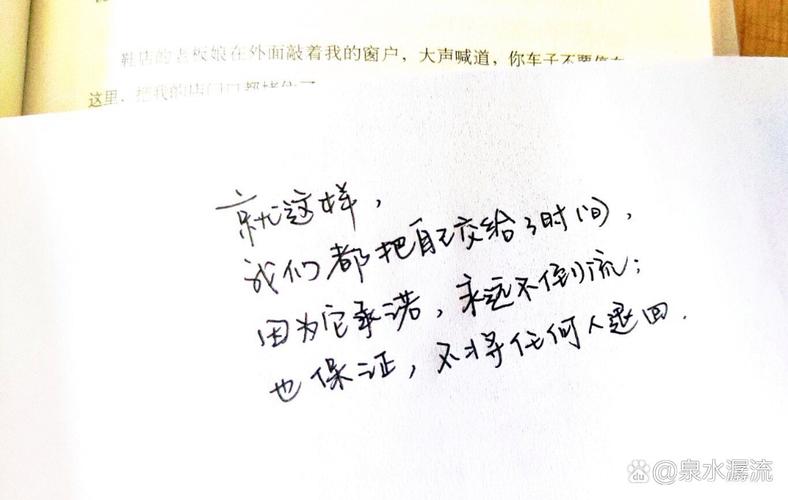 鞋店的老板娘在外面敲着我的窗户，大声喊道，你车子不要停在
这里，把我的店门口都堵住了
就这样，
我们都把自己交给了时间，
因为它承诺，永远不倒流；
也保证，不将任何人退回．
@泉水潺流